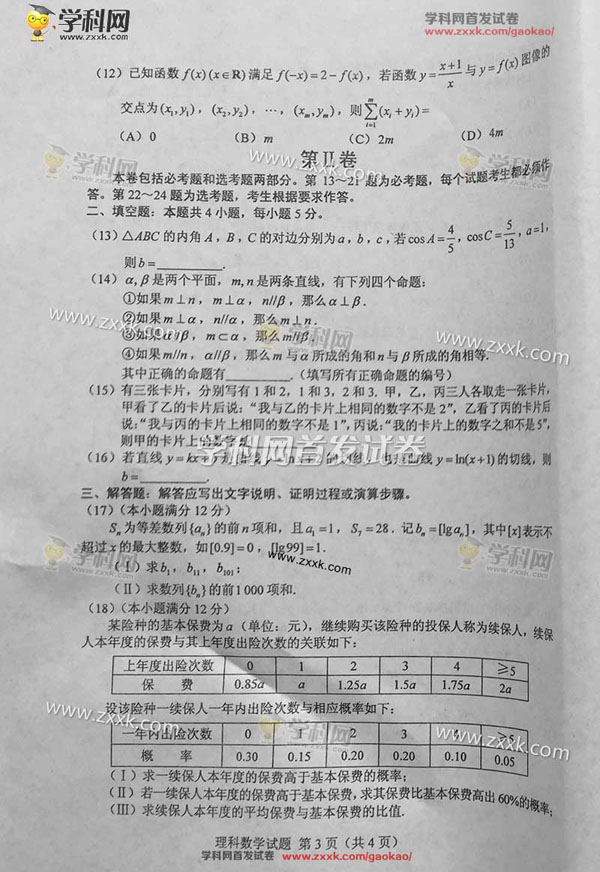 学科网
www.zxxk.com
学科网首发试卷
www.zxxk.com/gaokao/
(12) 已知函数 f(x)(x∈R) 满足 f(−x)=2−f(x)，若函数 y=(x+1)/x 与 y=f(x) 图像的
交点为 (x₁,y₁)，(x₂,y₂)，⋯，(xₘ,yₘ)，则 ∑ᵢ₌₁ᵐ(xᵢ+yᵢ)=
(A) 0 (B) m (C) 2m (D) 4m
第Ⅱ卷
本卷包括必考题和选考题两部分。第 13～21 题为必考题，每个试题考生都必须作
答。第 22～24 题为选考题，考生根据要求作答。
二、填空题：本题共 4 小题，每小题 5 分。
(13) △ABC 的内角 A，B，C 的对边分别为 a，b，c，若 cos A=4/5，cos C=5/13，a=1，
则 b=________.
(14) α,β 是两个平面，m,n 是两条直线，有下列四个命题：
①如果 m⊥n，m⊥α，n//β，那么 α⊥β.
②如果 m⊥α，n//α，那么 m⊥n.
③如果 α//β，m⊂α，那么 m//β.
④如果 m//n，α//β，那么 m 与 α 所成的角和 n 与 β 所成的角相等.
其中正确的命题有________.（填写所有正确命题的编号）
(15) 有三张卡片，分别写有 1 和 2，1 和 3，2 和 3. 甲，乙，丙三人各取走一张卡片，
甲看了乙的卡片后说：“我与乙的卡片上相同的数字不是 2”，乙看了丙的卡片后
说：“我与丙的卡片上相同的数字不是 1”，丙说：“我的卡片上的数字之和不是 5”，
则甲的卡片上的数字
(16) 若直线 y=kx+b 是曲线 y=ln x+2 的切线，也是曲线 y=ln(x+1) 的切线，则
b=________.
三、解答题：解答应写出文字说明、证明过程或演算步骤。
(17)（本小题满分 12 分）
Sₙ 为等差数列 {aₙ} 的前 n 项和，且 a₁=1，S₇=28. 记 bₙ=[lg aₙ]，其中 [x] 表示不
超过 x 的最大整数，如 [0.9]=0，[lg99]=1.
(Ⅰ) 求 b₁，b₁₁，b₁₀₁；
(Ⅱ) 求数列 {bₙ} 的前 1 000 项和.
(18)（本小题满分 12 分）
某险种的基本保费为 a（单位：元），继续购买该险种的投保人称为续保人，续保
人本年度的保费与其上年度出险次数的关联如下：
上年度出险次数 0 1 2 3 4 ≥5
保 费 0.85a a 1.25a 1.5a 1.75a 2a
设该险种一续保人一年内出险次数与相应概率如下：
一年内出险次数 0 1 2 3 4 ≥5
概 率 0.30 0.15 0.20 0.20 0.10 0.05
(Ⅰ) 求一续保人本年度的保费高于基本保费的概率；
(Ⅱ) 若一续保人本年度的保费高于基本保费，求其保费比基本保费高出 60% 的概率；
(Ⅲ) 求续保人本年度的平均保费与基本保费的比值.
理科数学试题 第 3 页（共 4 页）
学科网首发试卷 www.zxxk.com/gaokao/